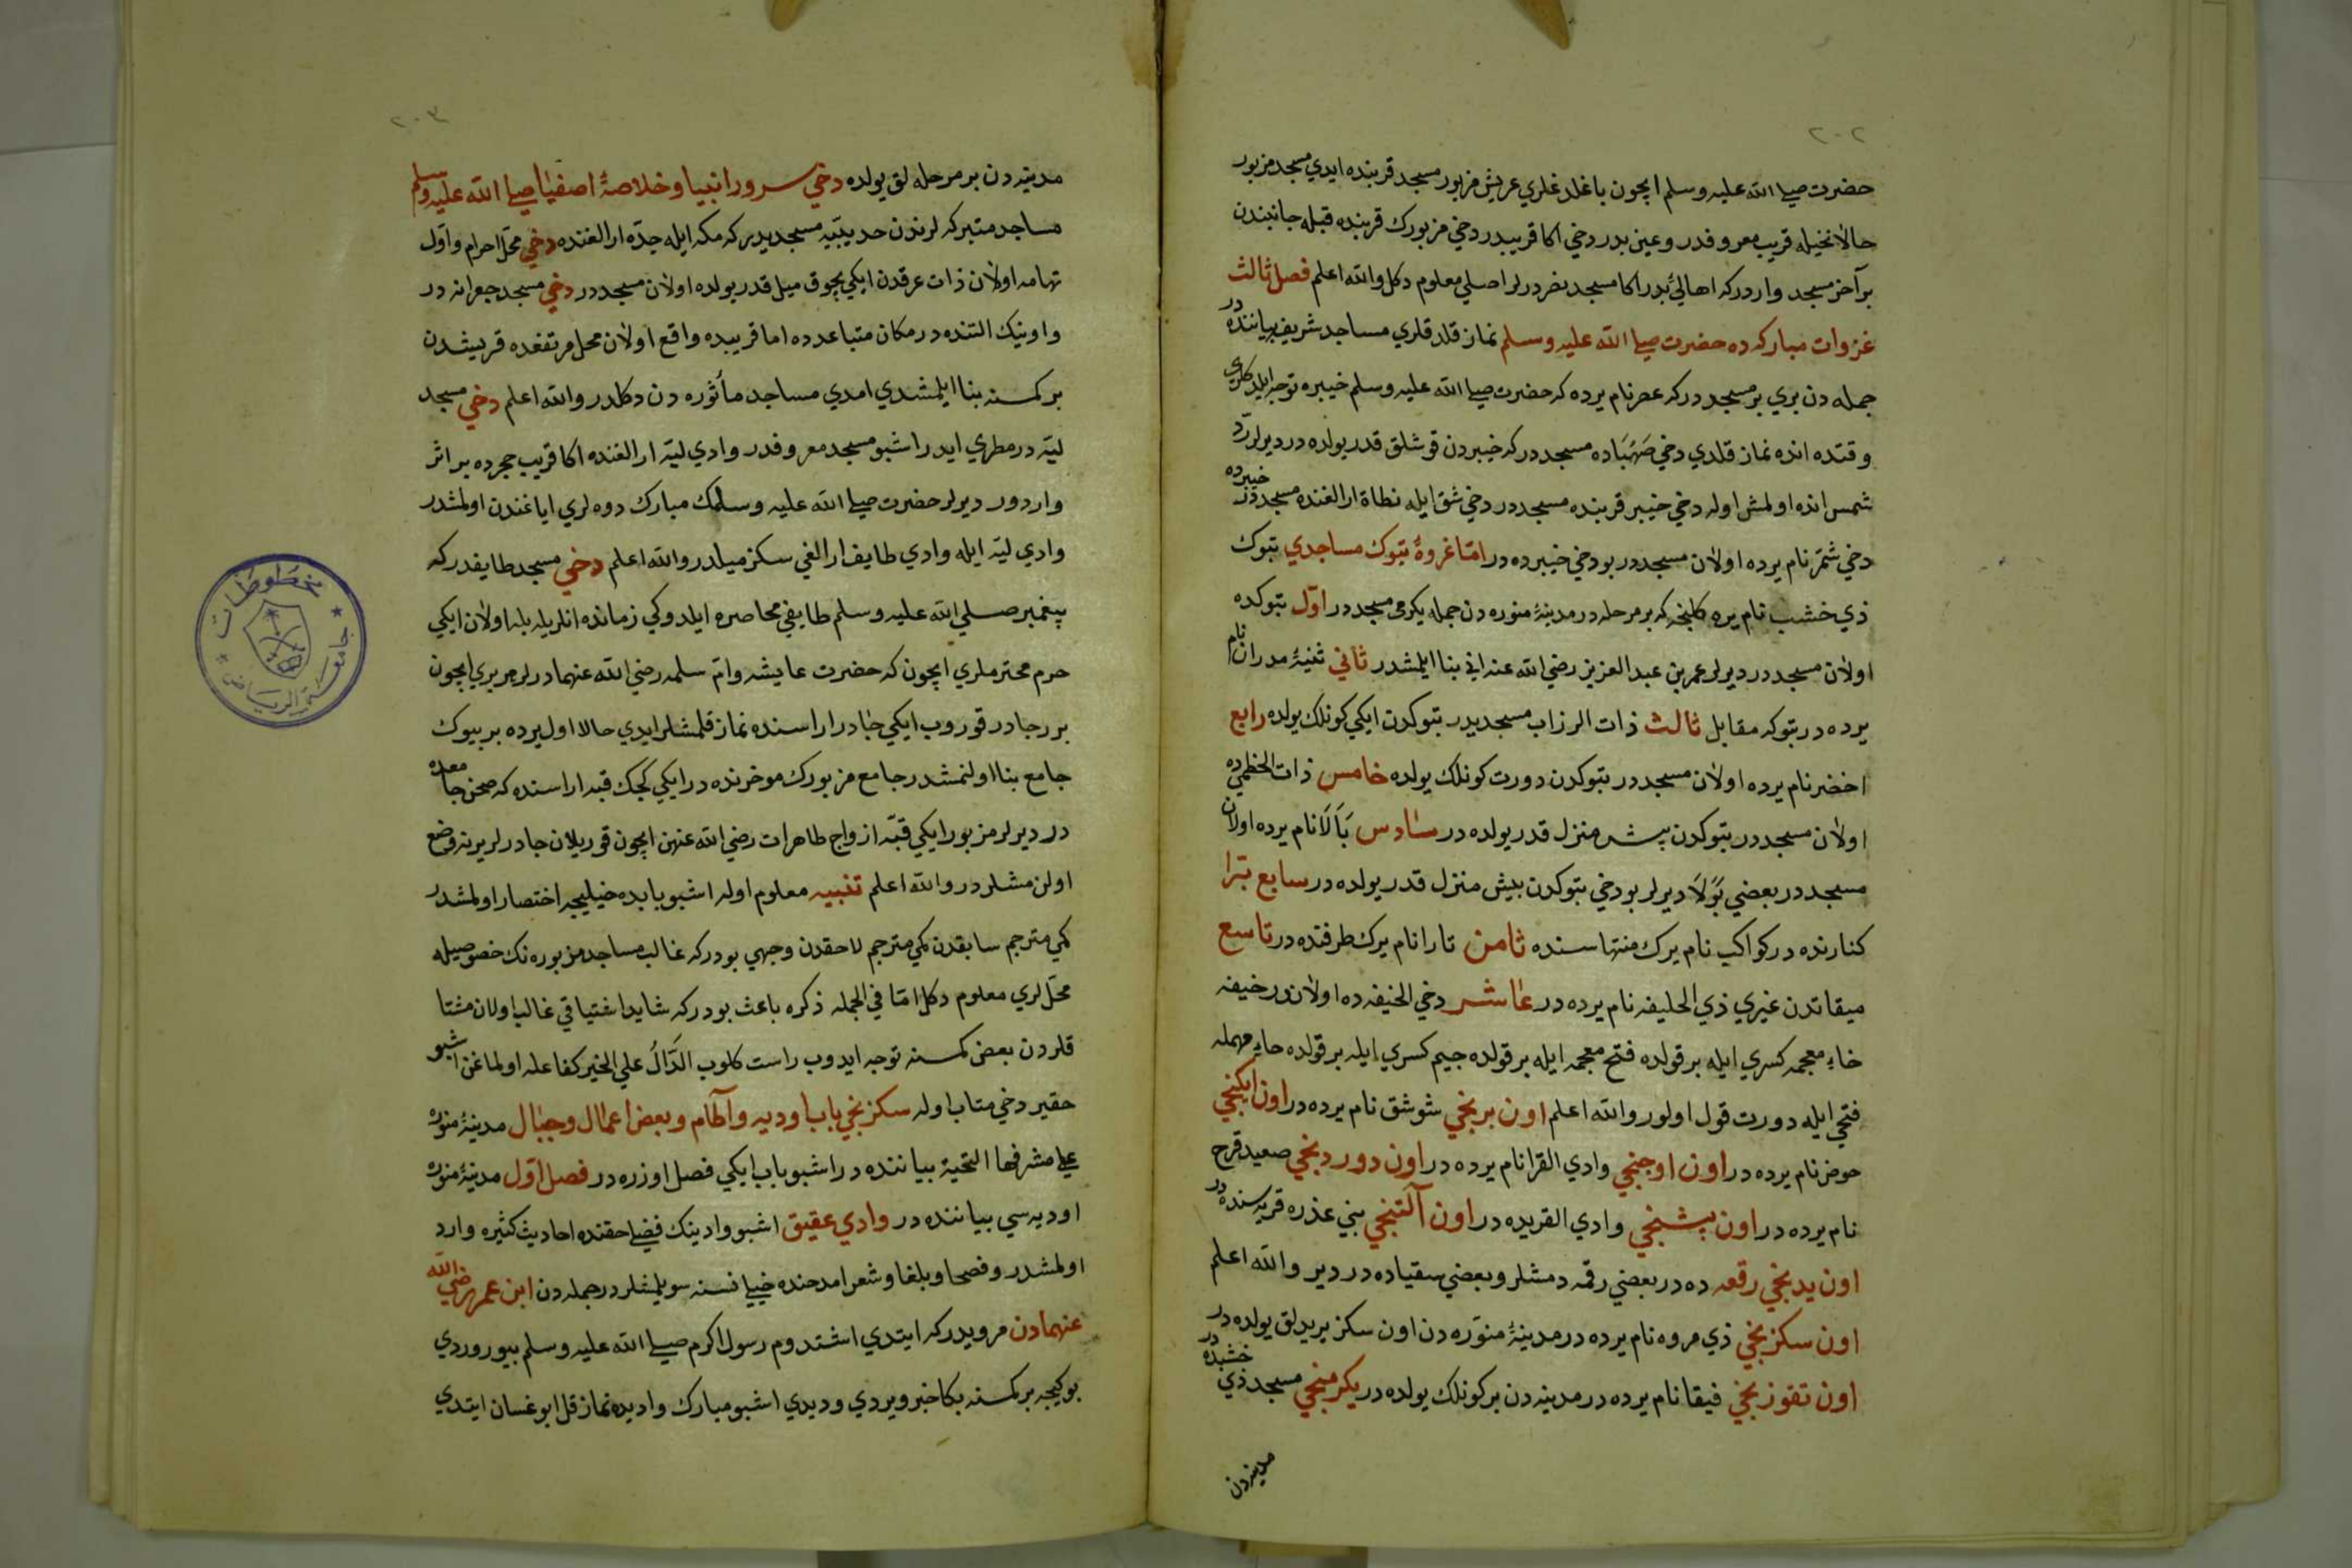 ٢٠٢
حضرت صلى الله عليه وسلم ايچون باغلدغلري عريش مزبور مسجد قربنده ايدي مسجد مزبور
حالا نخيله قريب معروفدر وعين بدر دخي اكا قريبدر دخي مزبورك قربنده قبله جانبندن
بر آخر مسجد واردركه اهالئ بدر اكا مسجد نصر درلر اصلي معلوم دكل والله اعلم فصل ثالث
غزوات مباركه ده حضرت صلى الله عليه وسلم نماز قلدقلري مساجد شريفه بياننده در
جمله دن بري بر مسجددركه عصر نام يرده كه حضرت صلى الله عليه وسلم خيبره توجه ايلدكلري
وقتده انده نماز قلدي دخي صهباده مسجددركه خيبردن قوشلق قدر يولده در ديرلر ردّ
شمس انده اولمش اوله دخي خيبر قربنده مسجددر دخي شق ايله نطاة ارالغنده مسجددر خيبرده
دخي شمّر نام يرده اولان مسجددر بو دخي خيبرده در امّا غزوۀ تبوك مساجدي تبوك
ذي خشب نام يره كلنجه كه بر مرحله در مدينۀ منوره دن جمله يكرمي مسجددر اوّل تبوكده
اولان مسجددر ديرلر عمر بن عبد العزيز رضي الله عنه اني بنا ايلمشدر ثاني ثنيۀ مدران نام
يرده در تبوكه مقابل ثالث ذات الزراب مسجديدر تبوكدن ايكي كونلك يولده رابع
اخضر نام يرده اولان مسجددر تبوكدن دورت كونلك يولده خامس ذات الخطمى ده
اولان مسجددر تبوكدن بش منزل قدر يولده در سادس بَالَا نام يرده اولان
مسجددر بعضي بَوْلَا ديرلر بو دخي تبوكدن بيش منزل قدر يولده در سابع بترا
كنارنده در كواكب نام يرك منتهاسنده ثامن تارا نام يرك طرفنده در تاسع
ميقاتدن غيري ذي الحليفه نام يرده در عاشر دخي الخنيفه ده اولاندر خيفه
خاء معجمه كسري ايله بر قولده فتح معجمه ايله بر قولده جيم كسري ايله بر قولده حاء مهمله
فتحي ايله دورت قول اولور والله اعلم اون برنجي شوشق نام يرده در اون ايكنجي
حوض نام يرده در اون اوجنجي وادي القرا نام يرده در اون دوردنجي صعيد قرح
نام يرده در اون بشنجي وادي القريده در اون آلتنجي بني عذره قريه سنده در
اون يدنجي رقعه ده در بعضي رقمه دمشلر وبعضي سقياده در دير والله اعلم
اون سكزنجي ذي مروه نام يرده در مدينۀ منوّره دن اون سكز بريدلق يولده در
اون تقوزنجي فيقا نام يرده در مدينه دن بر كونلك يولده در يكرمنجي مسجد ذي خشبده در
مدينه دن
٢٠٣
مدينه دن بر مرحله لق يولده دخي سرور انبيا وخلاصۀ اصفيا صلى الله عليه وسلم
مساجد متبركه لرندن حديبيّه مسجديدر كه مكه ايله جدّه ارالغنده دخي محلّ احرام واوّل
تهامه اولان ذات عرقدن ايكي بچوق ميل قدر يولده اولان مسجددر دخي مسجد جعرانه در
واونيك التنده در مكان متباعدده اما قريبده واقع اولان محل مرتفعده قريشدن
بر كمسنه بنا ايلمشدي امدي مساجد مأثوره دن دكلدر والله اعلم دخي مسجد
ليّه در مطري ايدر اشبو مسجد معروفدر وادي ليّه ارالغنده اكا قريب حجرده بر اثر
واردور ديرلر حضرت صلى الله عليه وسلمك مبارك دوه لري اياغندن اولمشدر
وادي ليّه ايله وادي طايف ارالغي سكز ميلدر والله اعلم دخي مسجد طايفدركه
پيغمبر صلى الله عليه وسلم طايفي محاصره ايلدوكي زمانده انلريله بله اولان ايكي
حرم محترملري ايچون كه حضرت عايشه وامّ سلمه رضي الله عنهمادرلر هر بري ايچون
برر چادر قوروب ايكي چادر اراسنده نماز قلمشلر ايدي حالا اول يرده بر بيوك
جامع بنا اولنمشدر جامع مزبورك موخرنده در ايكي كچك قبه اراسنده كه صحن جامعده
در ديرلر مزبور ايكي قبّه ازواج طاهرات رضي الله عنهن ايچون قوريلان چادرلر يرنه وضع
اولن مشلردر والله اعلم تنبيه معلوم اوله اشبو بابده خيليجه اختصار اولمشدر
كمي مترجم سابقدن كمي مترجم لاحقدن وجهي بودركه غالب مساجد مزبوره نك خصوصيله
محلّ لري معلوم دكل امّا في الجمله ذكره باعث بودركه شايد اشتياقي غالب اولان مشتا
قلردن بعض كمسنه توجه ايدوب راست كلوب الدَّالُ علي الخير كفاعله اولماغن اشبو
حقير دخي مثاب اوله سكزنجي باب اوديه وآطام وبعض اعمال وجبال مدينۀ منوره
على مشرفها التحية بياننده در اشبو باب ايكي فصل اوزره در فصل اوّل مدينۀ منوره
اوديه سي بياننده در وادي عقيق اشبو وادينك فضلي حقنده احاديث كثيره وارد
اولمشدر وفصحا وبلغا وشعرا مدحنده خيلي نسنه سويلمشلردر جمله دن ابن عمر رضي الله
عنهمادن مرويدركه ايتدي اشتدوم رسول اكرم صلى الله عليه وسلم بيوروردي
بو كيجه بر كمسنه بكا خبر ويردي وديدي اشبو مبارك واديده نماز قل ابو غسان ايتدي
مخطوطات
جامعة الرياض